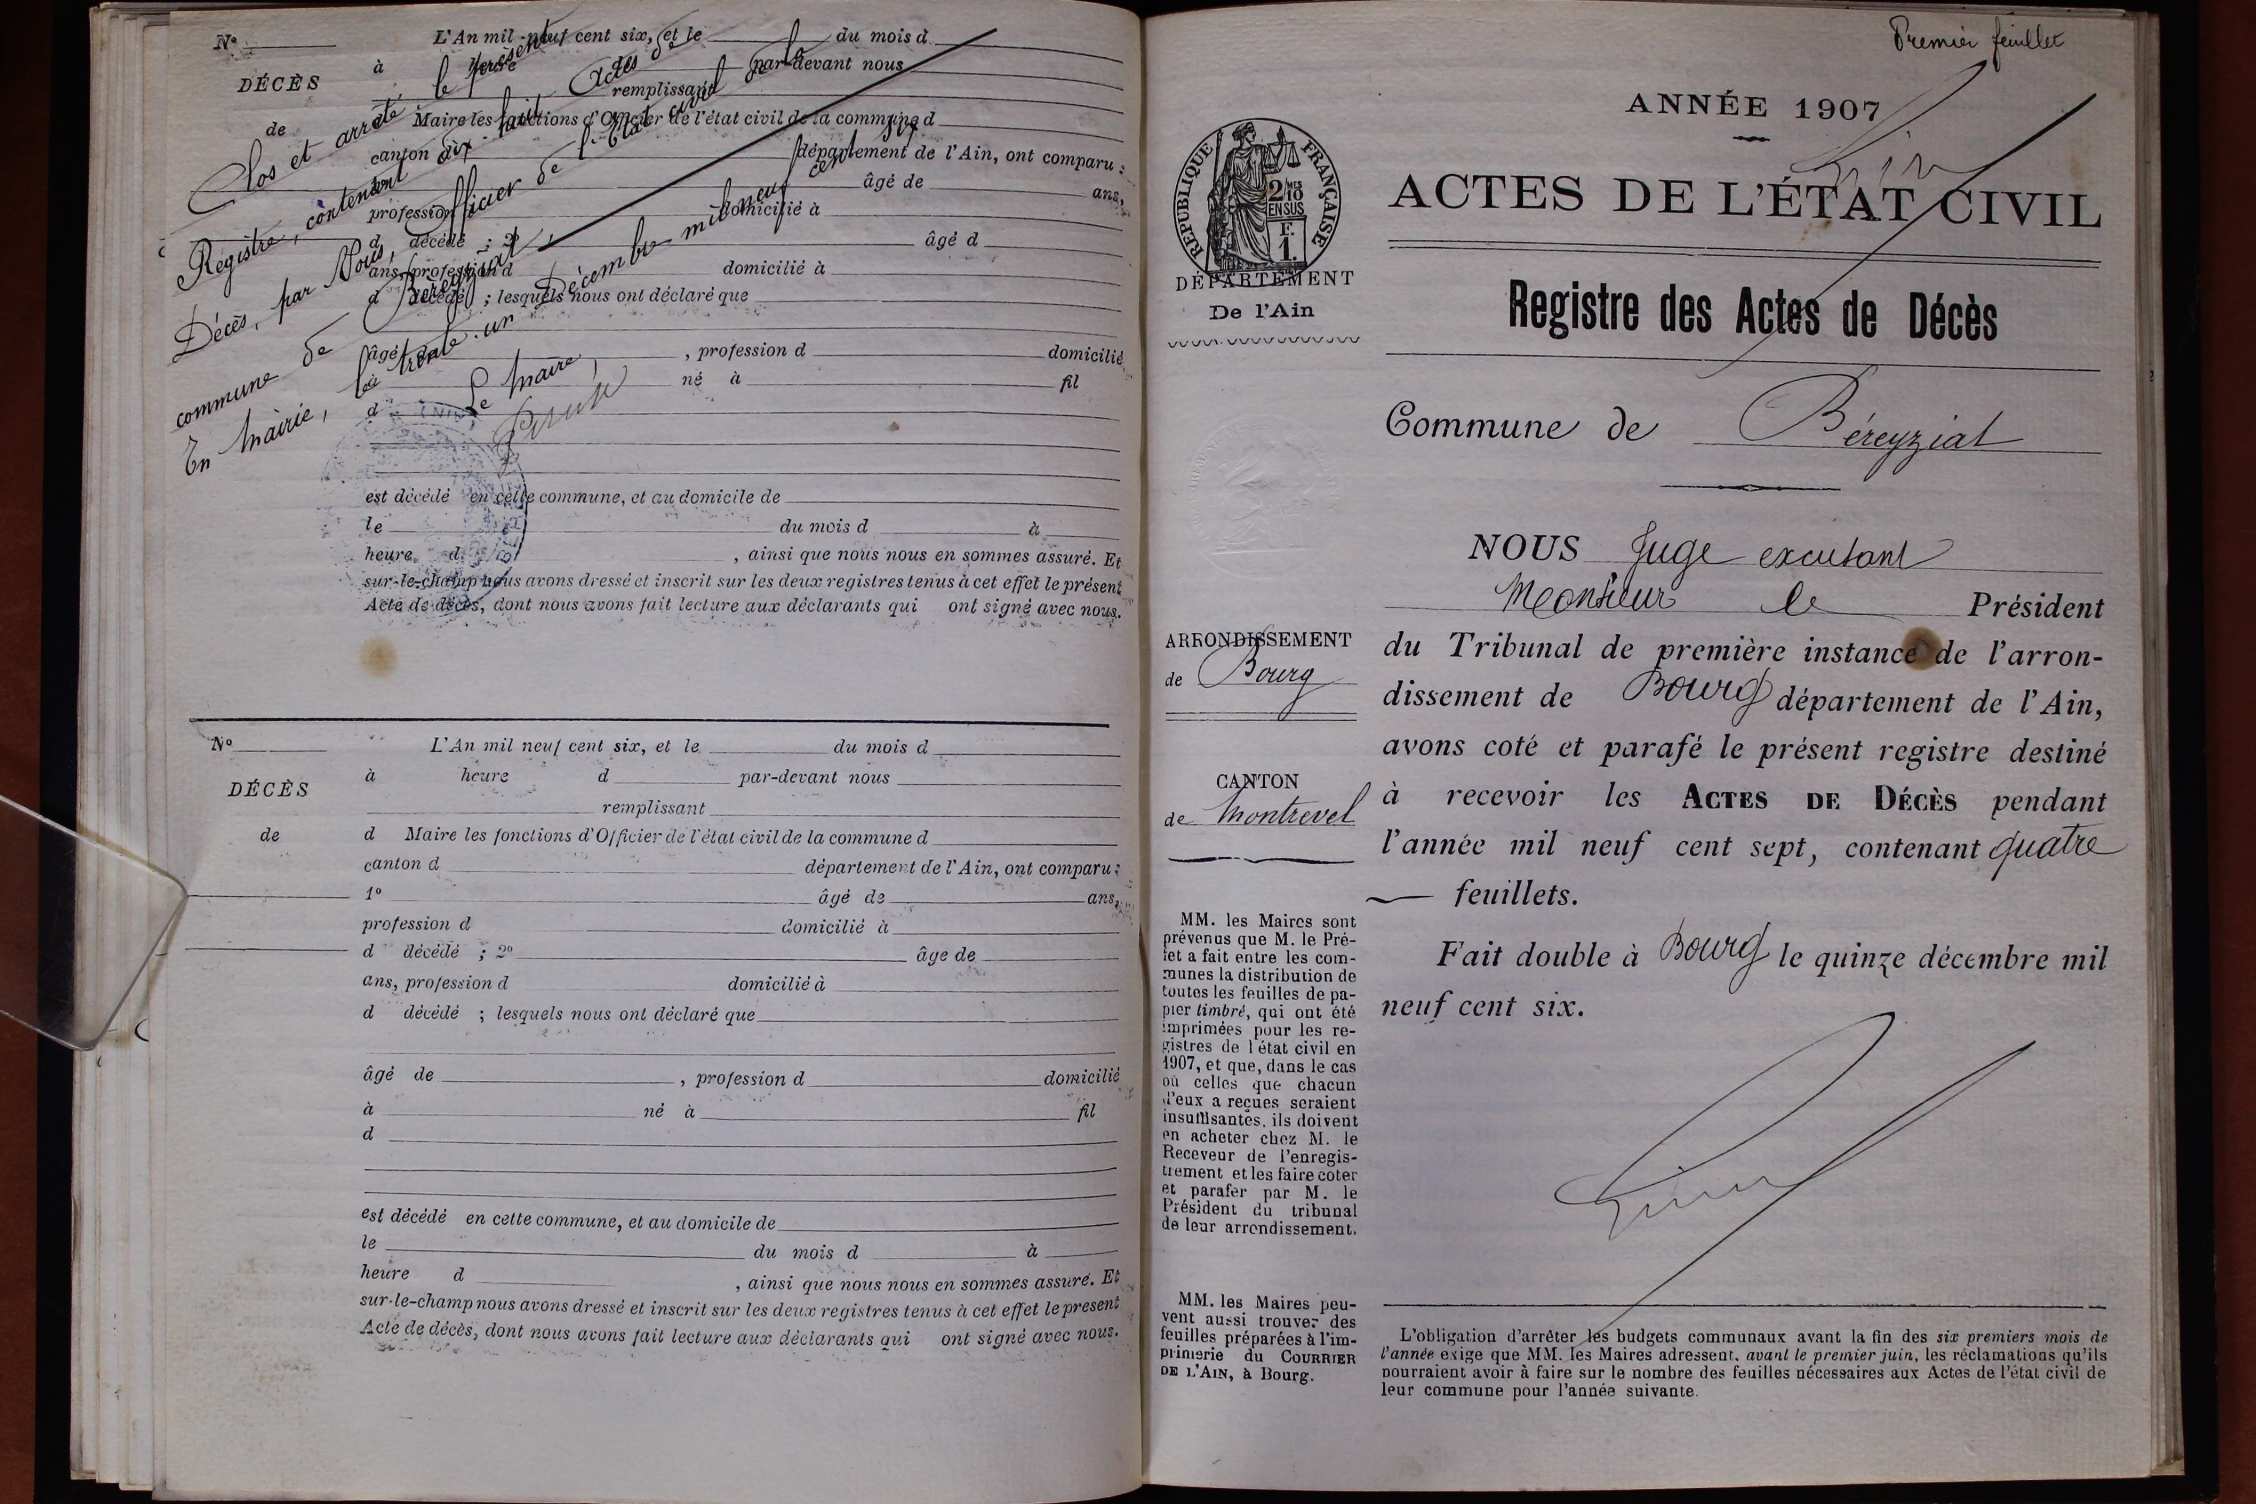 N°
DÉCÈS
de
L'An mil neuf cent six, et le du mois d
à heure d par-devant nous
remplissant
d Maire les fonctions d'Officier de l'état civil de la commune d
canton d département de l'Ain, ont comparu :
âgé de ans,
profession d domicilié à
d décédé ; 2° âgé d
ans, profession d domicilié à
d décédé ; lesquels nous ont déclaré que
âgé de , profession d domicilié
à né à fil
d
est décédé en cette commune, et au domicile de
le du mois d à
heure d , ainsi que nous nous en sommes assuré. Et
sur-le-champ nous avons dressé et inscrit sur les deux registres tenus à cet effet le présent
Acte de décès, dont nous avons fait lecture aux déclarants qui ont signé avec nous.
Clos et arrêté le présent
Registre, contenant dix-huit Actes de
Décès, par Nous, Officier de l'Etat civil de la
commune de Bereyziat,
En Mairie, le trente-un Décembre mil neuf cent six
Le Maire,
N°
DÉCÈS
de
L'An mil neuf cent six, et le du mois d
à heure d par-devant nous
remplissant
d Maire les fonctions d'Officier de l'état civil de la commune d
canton d département de l'Ain, ont comparu :
1° âgé de ans,
profession d domicilié à
d décédé ; 2° âge de
ans, profession d domicilié à
d décédé ; lesquels nous ont déclaré que
âgé de , profession d domicilié
à né à fil
d
est décédé en cette commune, et au domicile de
le du mois d à
heure d , ainsi que nous nous en sommes assuré. Et
sur-le-champ nous avons dressé et inscrit sur les deux registres tenus à cet effet le present
Acte de décès, dont nous avons fait lecture aux déclarants qui ont signé avec nous.
Premier feuillet
RÉPUBLIQUE FRANÇAISE
2 MES 10
EN SUS
F.
1.
DÉPARTEMENT
De l'Ain
ARRONDISSEMENT
de Bourg
CANTON
de Montrevel
MM. les Maires sont
prévenus que M. le Pré-
fet a fait entre les com-
munes la distribution de
toutes les feuilles de pa-
pier timbré, qui ont été
imprimées pour les re-
gistres de l'état civil en
1907, et que, dans le cas
où celles que chacun
d'eux a reçues seraient
insuffisantes, ils doivent
en acheter chez M. le
Receveur de l'enregis-
trement et les faire coter
et parafer par M. le
Président du tribunal
de leur arrondissement.
MM. les Maires peu-
vent aussi trouver des
feuilles préparées à l'im-
primerie du COURRIER
DE L'AIN, à Bourg.
ANNÉE 1907
ACTES DE L'ÉTAT CIVIL
Registre des Actes de Décès
Commune de Béreyziat
NOUS Juge excusant
Monsieur le Président
du Tribunal de première instance de l'arron-
dissement de Bourg département de l'Ain,
avons coté et parafé le présent registre destiné
à recevoir les ACTES DE DÉCÈS pendant
l'année mil neuf cent sept, contenant quatre
feuillets.
Fait double à Bourg le quinze décembre mil
neuf cent six.
L'obligation d'arrêter les budgets communaux avant la fin des six premiers mois de
l'année exige que MM. les Maires adressent, avant le premier juin, les réclamations qu'ils
pourraient avoir à faire sur le nombre des feuilles nécessaires aux Actes de l'état civil de
leur commune pour l'année suivante.